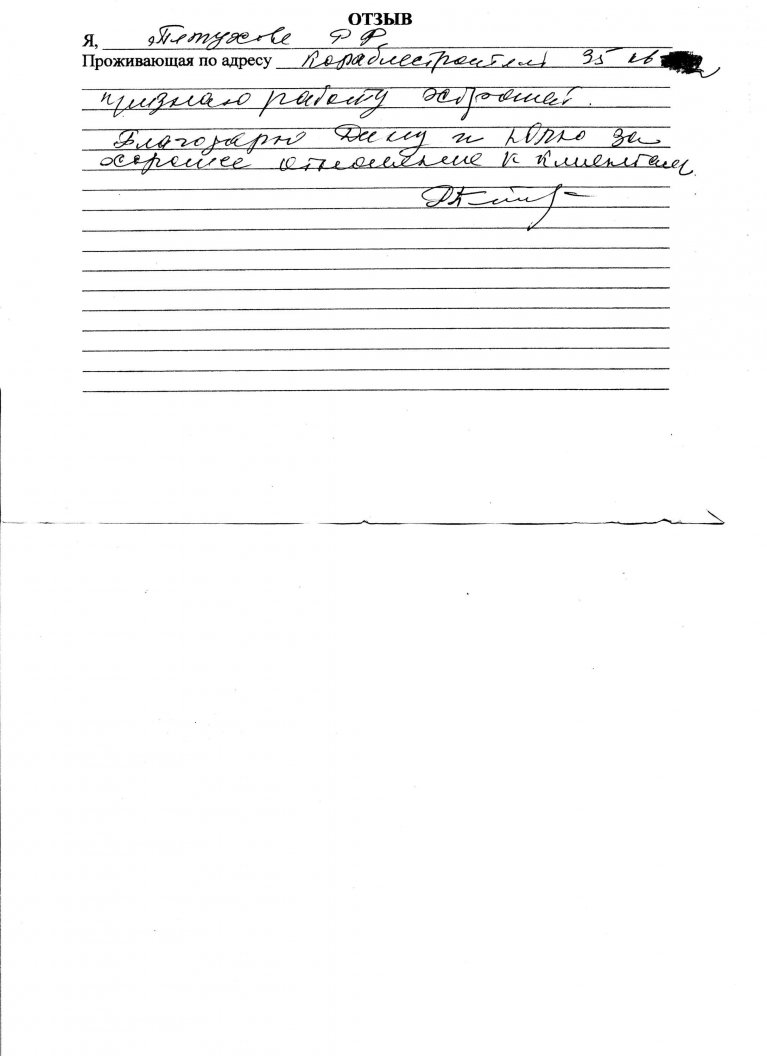 ОТЗЫВ
Я, Петухова Р Ф
Проживающая по адресу Кораблестроителей 35 кв
признаю работу хорошей.
Благодарю Дину и Юлю за
хорошее отношение к клиентам